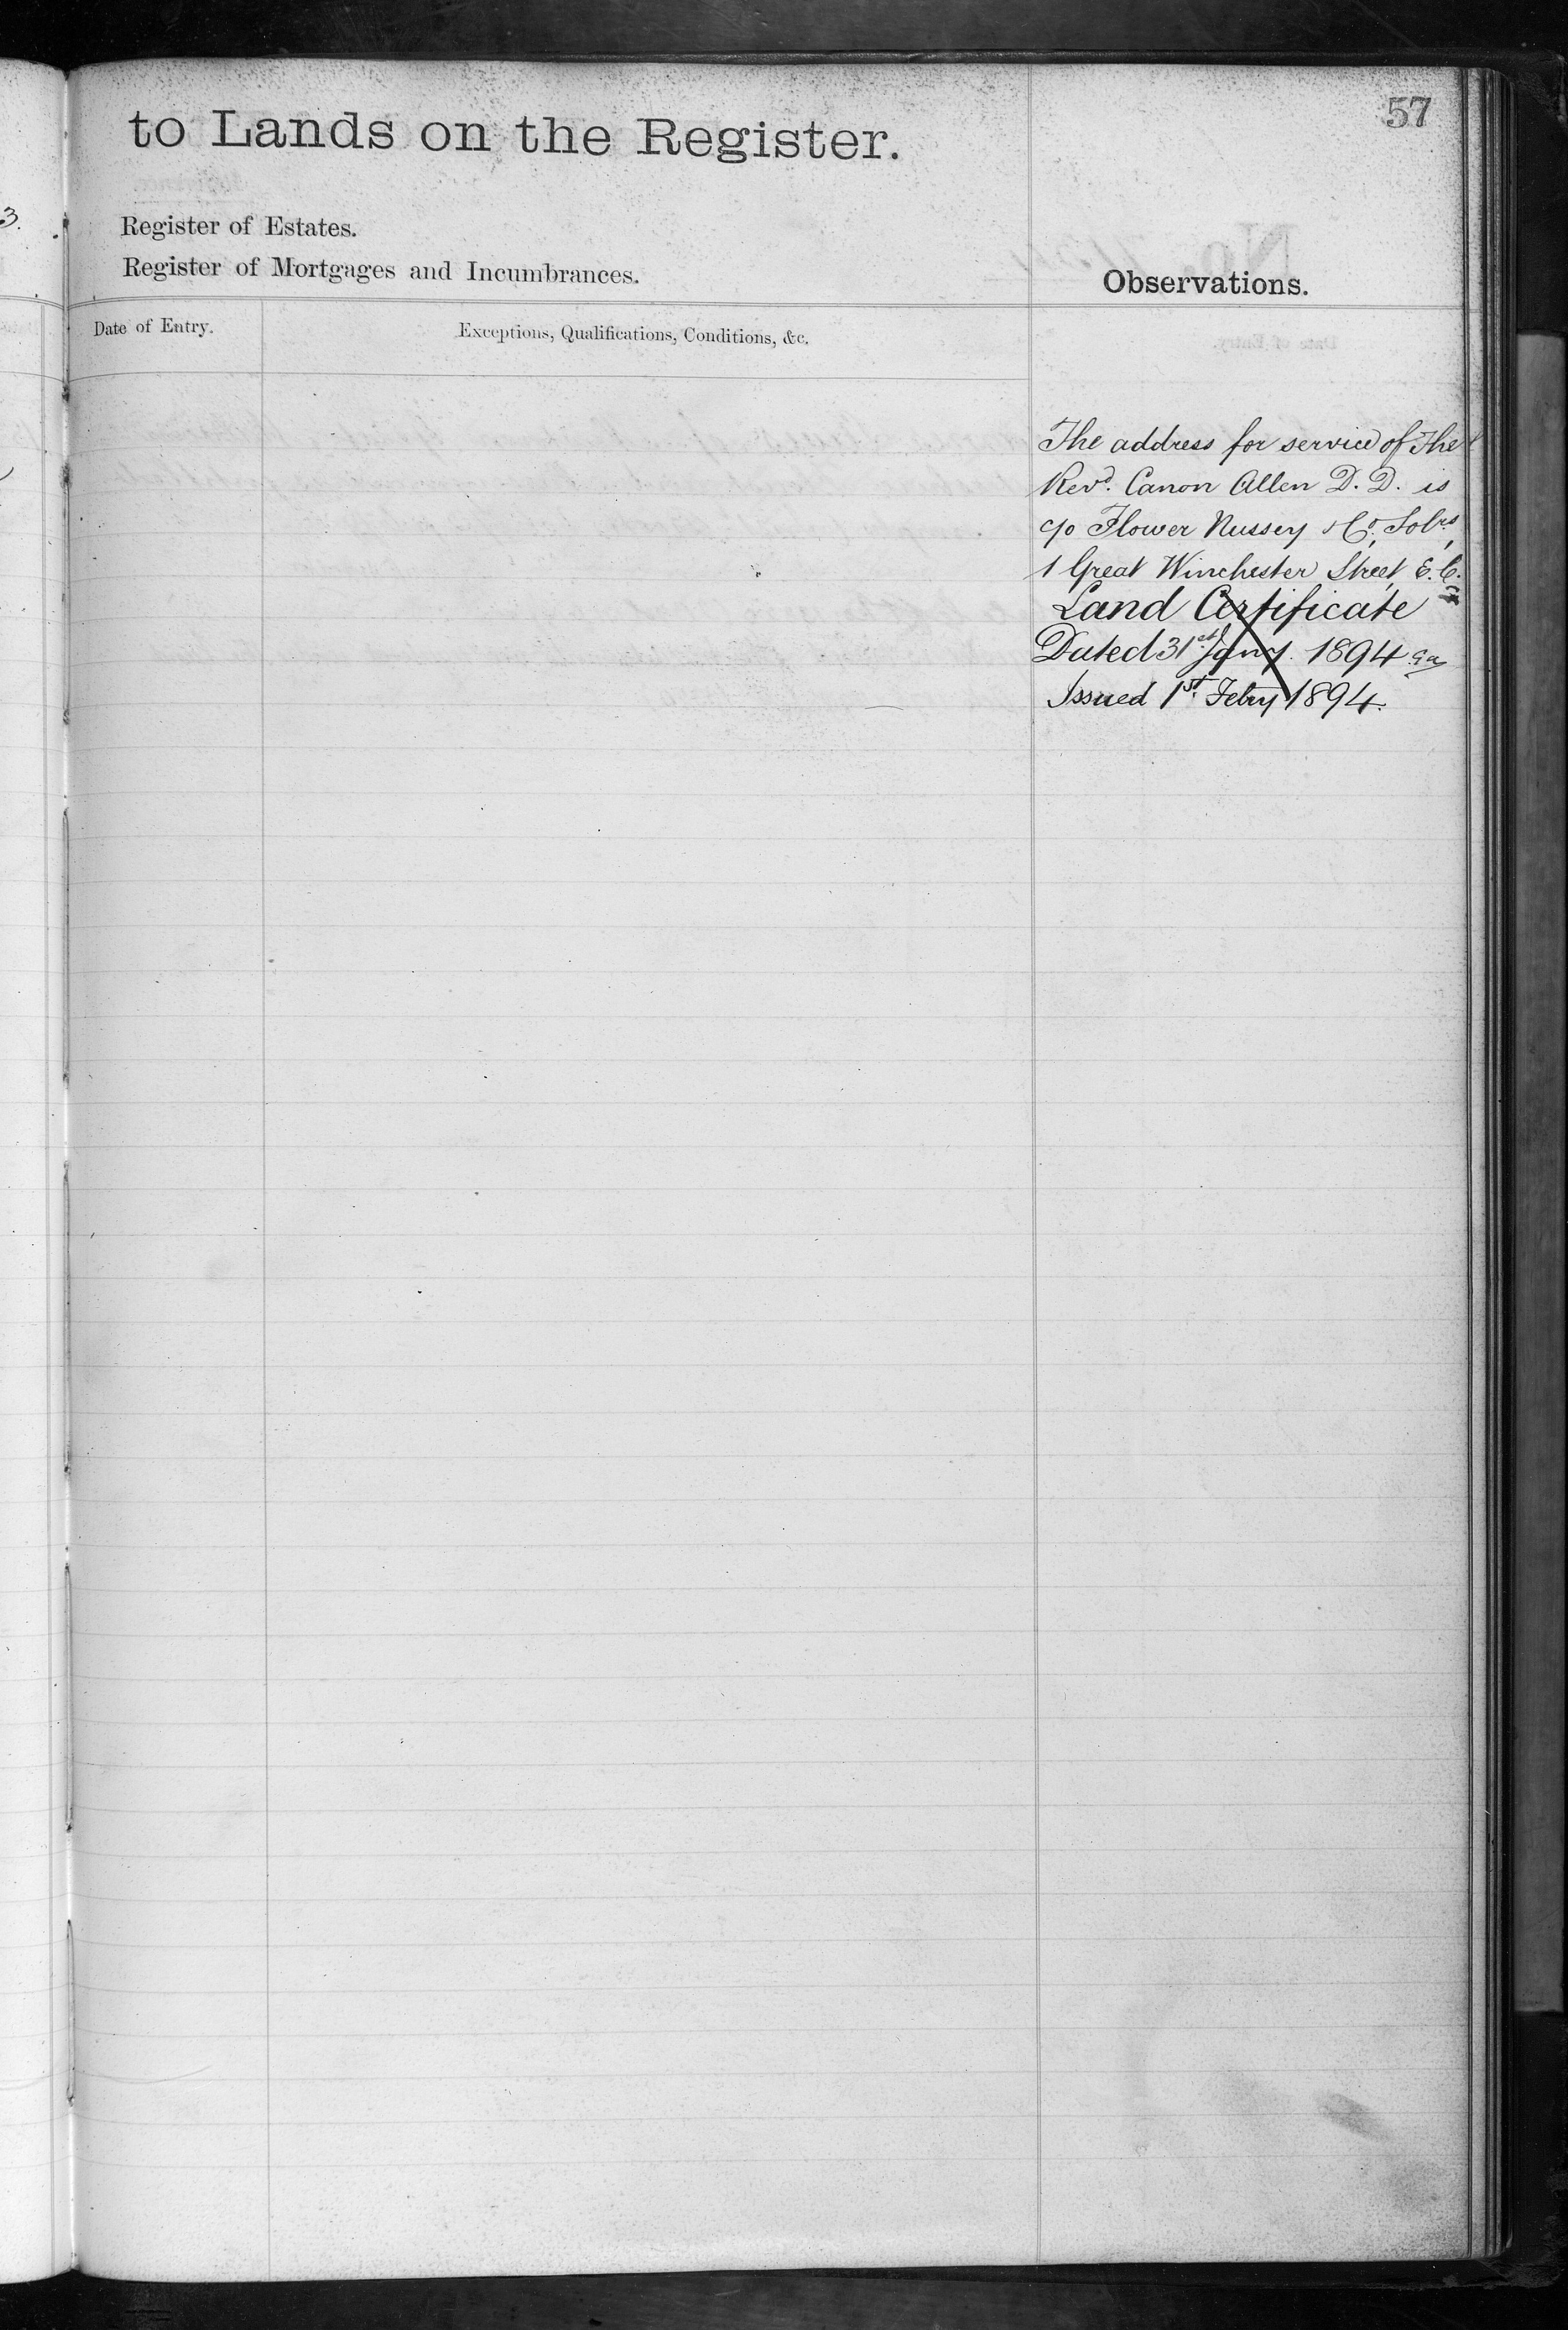 57
to Lands on the Register.
Register of Estates.
Register of Mortgages and Incumbrances.
Observations.
Date of Entry.
Exceptions, Qualifications, Conditions, &c.
The address for service of The
Revd. Canon Allen D. D. is
c/o Flower Nussey & Co., Solrs,
1 Great Winchester Street E.C.
Land Certificate
Dated 31st Jany. 1894
Issued 1st. Febry 1894.
3.